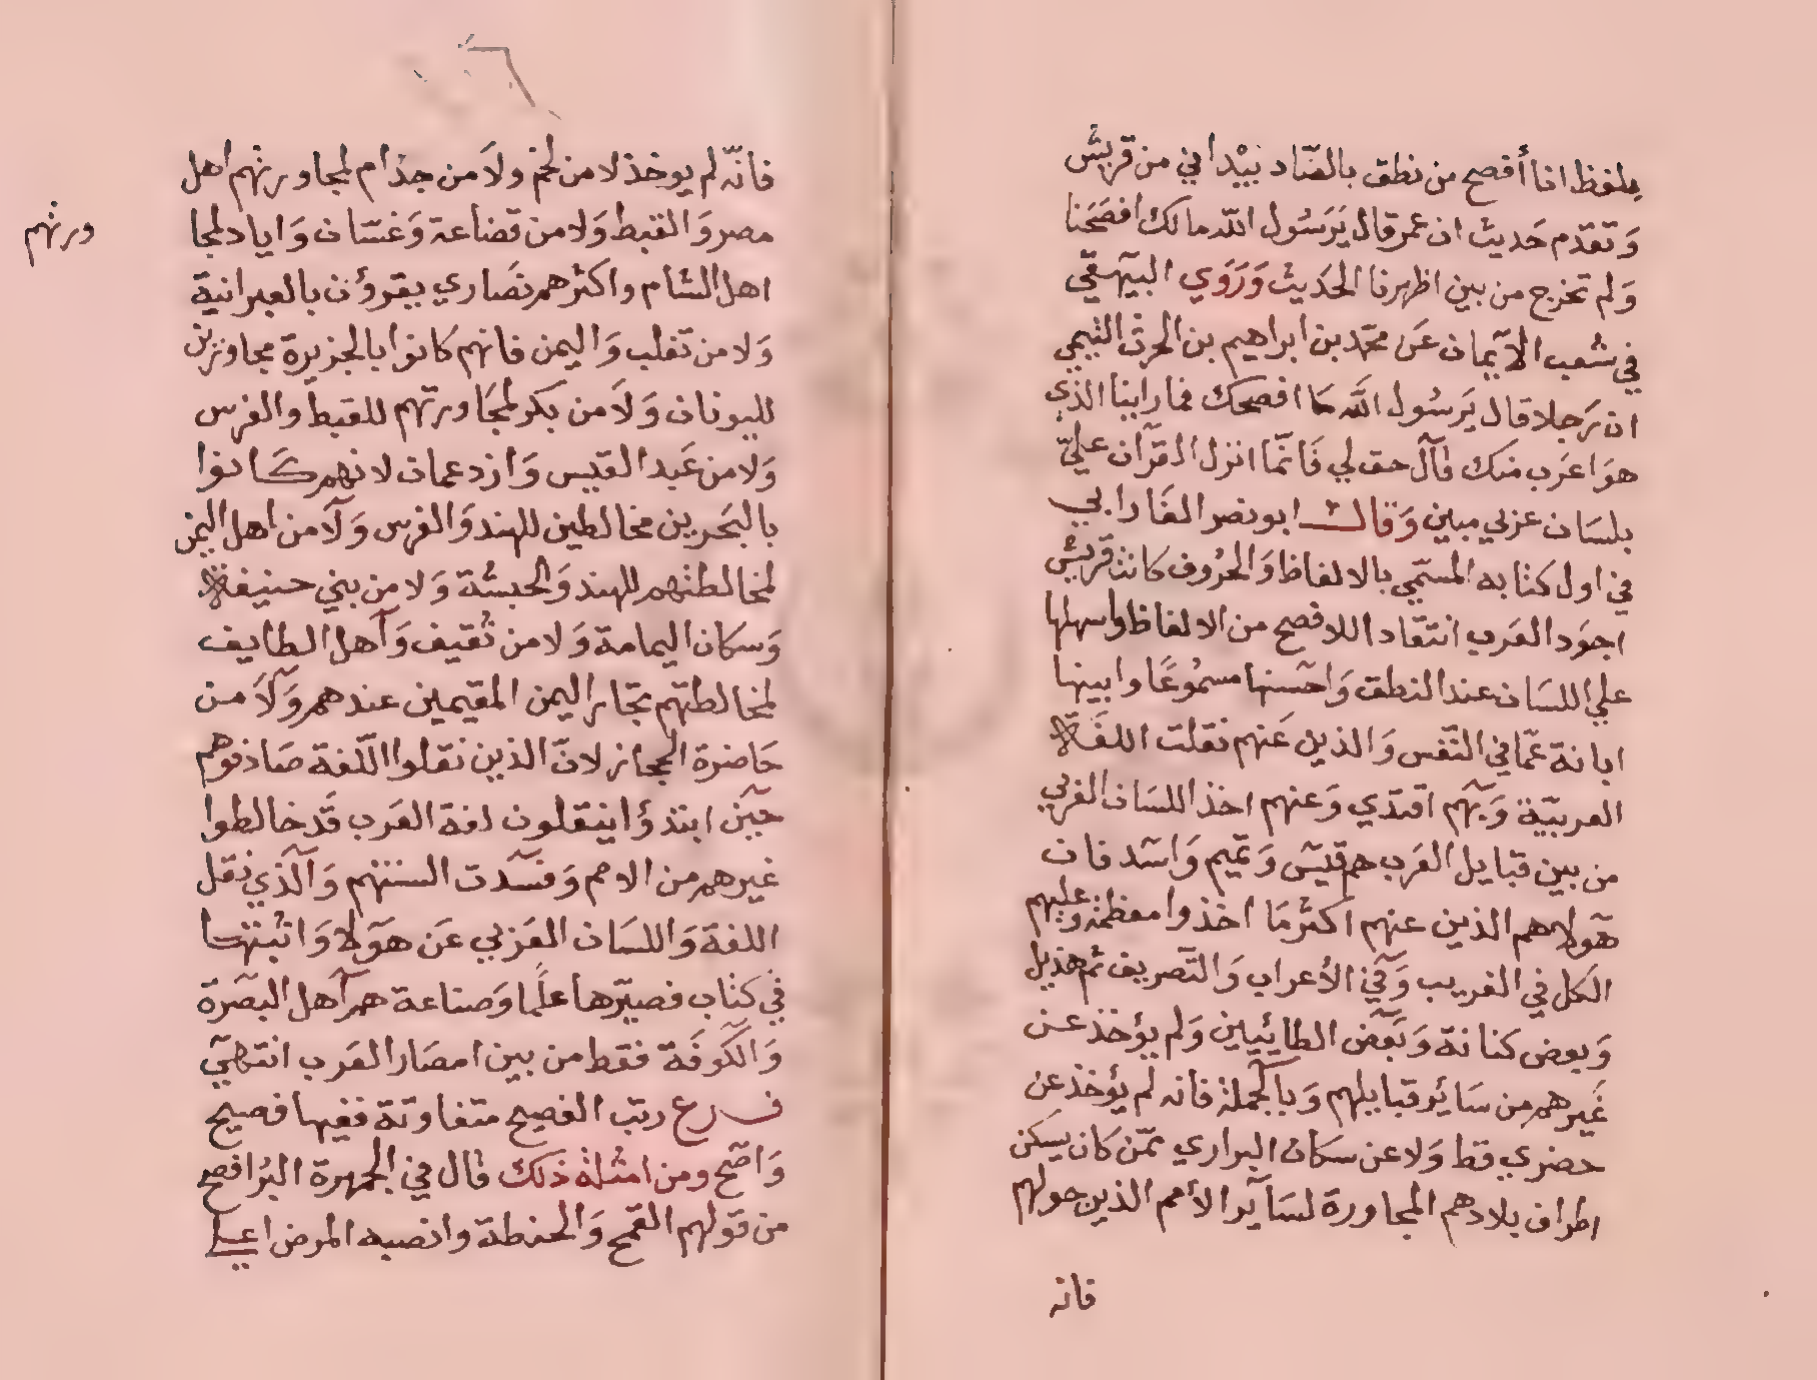 بلفظ انا أفصح من نطق بالضاد بيْد اني من قريش
وَتقدم حَديث ان عمر قال يَرَسُول الله مالك افصَحَنا
وَلم تخرج من بين اظهرنا الحَديث وَرَوَي البيهَقي
في شعب الآيمان عَن محمّد بن ابراهيم بن الحرث التيمي
ان رَجلا قال يَرسُول الله مَا افصحك فما راينا الذي
هوَ اعرَب منك قآل حق لي فَانّما انزل القرآن عليّ
بلسَان عربي مبين وَقال ابو نصر الفَارابي
في اول كتابه المسمّي بالالفاظ وَالحرُوف كانت قريش
اجوَد العَرب انتقاد اللافصح من الالفاظ واسهلها
علي اللسَان عند النطق وَاحسَنها مسمُوعًا وابينها
ابانة عمّا في النّفس وَالذين عَنهم نقلت اللغَة
العربيّة وَبهم اقتدي وَعنهم اخذ اللسَان العَربي
من بين قبايل العَرب هم قيس وَتميم وَاسَد فان
هَولاء هم الذين عنهم اكثر مَا اخذ وا معظمه وَعليهم
اتكل في الغريب وَفي الأعراب وَالتّصريف ثم هذيل
وَبعض كنانة وَبَعَض الطائيين وَلم يؤخذ عن
غَيرهم من سَائر قبايلهم وَبالجملة فانه لم يؤخذ عن
حضري قط وَلا عن سكان البراري ممّن كان يسكن
اطراف بلادهم المجاورة لسَآير الأمم الذين حولهم
فانه
فانّه لم يوخذ لا من لخم ولاَ من جذام لمجاورتهم اهل
مصر وَالقبط وَلا من قضاعة وَغسّان وَاياد لمجا
ورتهم
اهل الشام واكثرهم نصَاري يقرؤن بالعبرانية
وَلا من تغلب وَاليمن فانهم كانوا بالجزيرة مجاورين
لليونان وَلاَ من بكر لمجَاورتهم للقبط والفرس
وَلا من عَبد القيس وَازد عمان لانهم كانوا
بالبَحرين مخالطين للهند وَالفرس وَلآ من اهل اليمن
لمخالطتهم للهند وَالحبشة وَلا من بني حنيفة
وَسكان اليمامة وَلا من ثقيف وَآهل الطايف
لمخالطتهم تجّار اليمن المقيمين عندهم وَلآَ من
حَاضرة الحجاز لانّ الذين نقلوا اللّغة صَادفوهم
حيَن ابتدؤا ينقلون لغة العَرب قَد خالطوا
غيرهم من الامم وَفسَدت السنتهم وَالّذي نقل
اللغة وَاللسَان العَربي عَن هوَلا وَاثبتها
في كتاب فصيّرها علًما وَصناعة هم آهل البصَرة
وَالكوفَة فقط من بين امصَار العَرب انتهيَ
فرع رتب الفصيح متفاوتة ففيها فصيح
وَافصَح ومن امثلة ذلك قال في الجمهرة البُر افصح
من قولهم القمح وَالحنطة وانصبه المرض اعلي